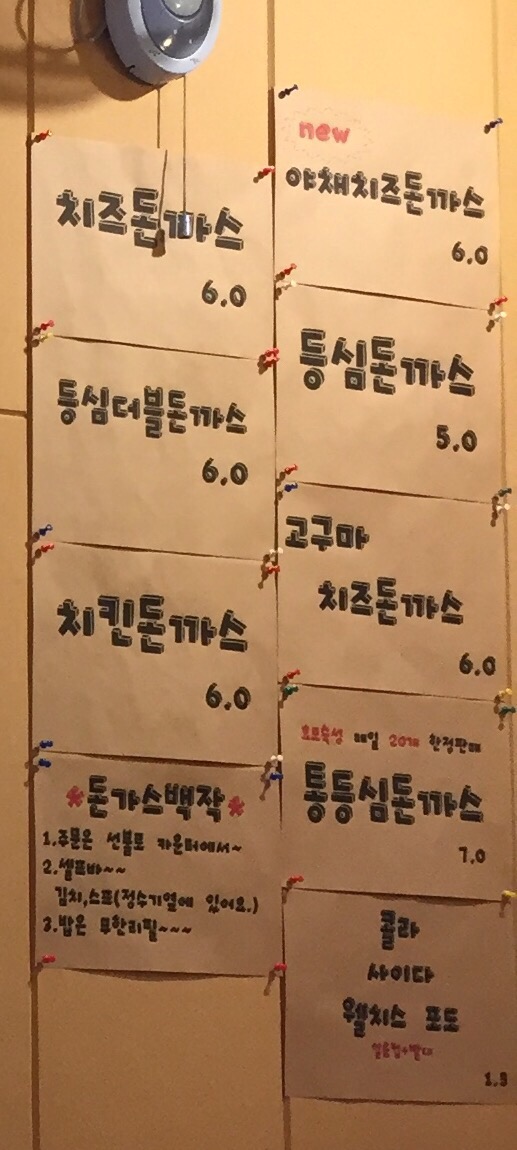 치즈돈까스
6.0
등심더블돈까스
6.0
치킨돈까스
6.0
*돈가스백작*
1.주문은 선불로 카운터에서~
2.셀프바~~
김치,스프(정수기옆에 있어요.)
3.밥은 무한리필~~~
new
야채치즈돈까스
6.0
등심돈까스
5.0
고구마
치즈돈까스
6.0
효모숙성 매일 20개 한정판매
통등심돈까스
7.0
콜라
사이다
웰치스 포도
얼음컵+빨대
1.3